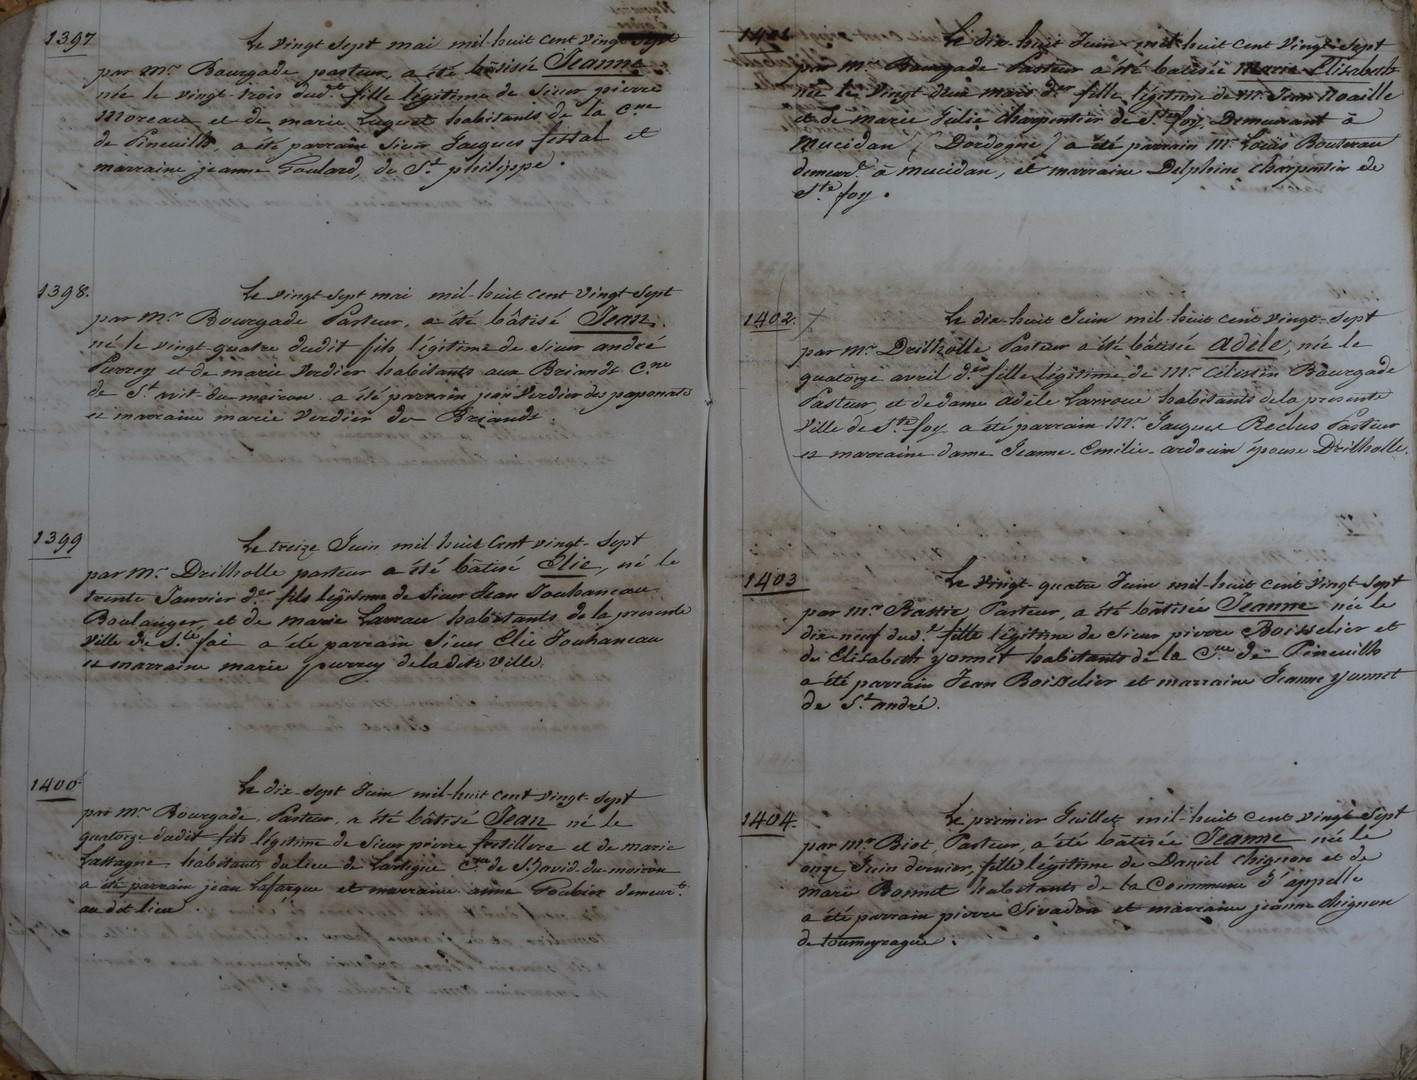 1397
Le vingt sept mai mil-huit cent vingt sept
par Mr Bourgade pasteur a été bâtisée Jeanne
née le vingt-trois dudt fille légitime de Sieur pierre
Moreau et de marie Luguet habitants de la Cne
de Pineuilh a été parrain Sieur Jacques festal et
marraine jeanne Goulard, de St philippe.
1398.
Le vingt-sept mai mil-huit cent vingt sept
par Mr Bourgade Pasteur, a été bâtisé Jean,
né le vingt quatre dudit fils légitime de Sieur andré
Purrey et de marie Verdier habitants aux Briands Cne
de St avit du moiron a été parrain jean Verdier des paponats
et marraine marie Verdier de Briands.
1399
Le treize Juin mil huit cent vingt-sept
par Mr Drilholle pasteur a été bâtisé Elie, né le
trente Janvier der fils légitime de Sieur Jean Jouhaneau
Boulanger, et de marie Larraue habitants de la presente
Ville de Ste foi a été parrain Sieur Elie Jouhaneau
et marraine marie purrey de ladite Ville.
1400
Le dix-sept Juin mil-huit cent vingt-sept
par Mr Bourgade, Pasteur, a été bâtisé Jean né le
quatorze dudit fils légitime de Sieur pierre fertillere et de marie
Lassagne habitants du lieu de Lartigue Cne de St avid du moiron
a été parrain jean Lafargue et marraine anne demeurt
au dit lieu.
1401
Le dix-huit Juin mil-huit cent vingt-sept
par Mr Bourgade Pasteur a été batisée Marie Elisabeth
née le vingt deux mars der fille légitime de Mr Jean Noaille
et de Marie Julie Charpentier de Ste foy, Demeurant à
Mucidan (Dordogne) a été parrain Mr Louis Bouterau
demeurt à mucidan, et marraine Delphine Charpentier de
Ste foy.
1402.
Le dix-huit Juin mil-huit cent vingt-sept
par Mr Drilholle Pasteur a été bâtisée adèle, née le
quatorze avril der fille légitime de Mr Célestin Bourgade
Pasteur, et de dame adèle Larroue habitants de la presente
Ville de Ste foy a été parrain Mr Jacques Reclus Pasteur
et marraine dame Jeanne-Emilie-ardouin épouse Drilholle.
1403
Le vingt quatre Juin mil-huit cent vingt sept
par Mr Rattié Pasteur, a été bâtisée Jeanne née le
dix-neuf dudt fille légitime de Sieur pierre Boisselier et
de Elisabeth yonnet habitants de la Cne de Pineuilh
a été parrain Jean Boisselier et marraine Jeanne yonnet
de St andré.
1404.
Le premier Juillet mil-huit cent vingt sept
par Mr Biot, Pasteur, a été bâtisée Jeanne née le
onze Juin dernier, fille légitime de Daniel Chignon et de
marie Bonnet habitants de la Commune d'appelle
a été parrain pierre Sivadon et marraine jeanne Chignon
de toumeyragues.